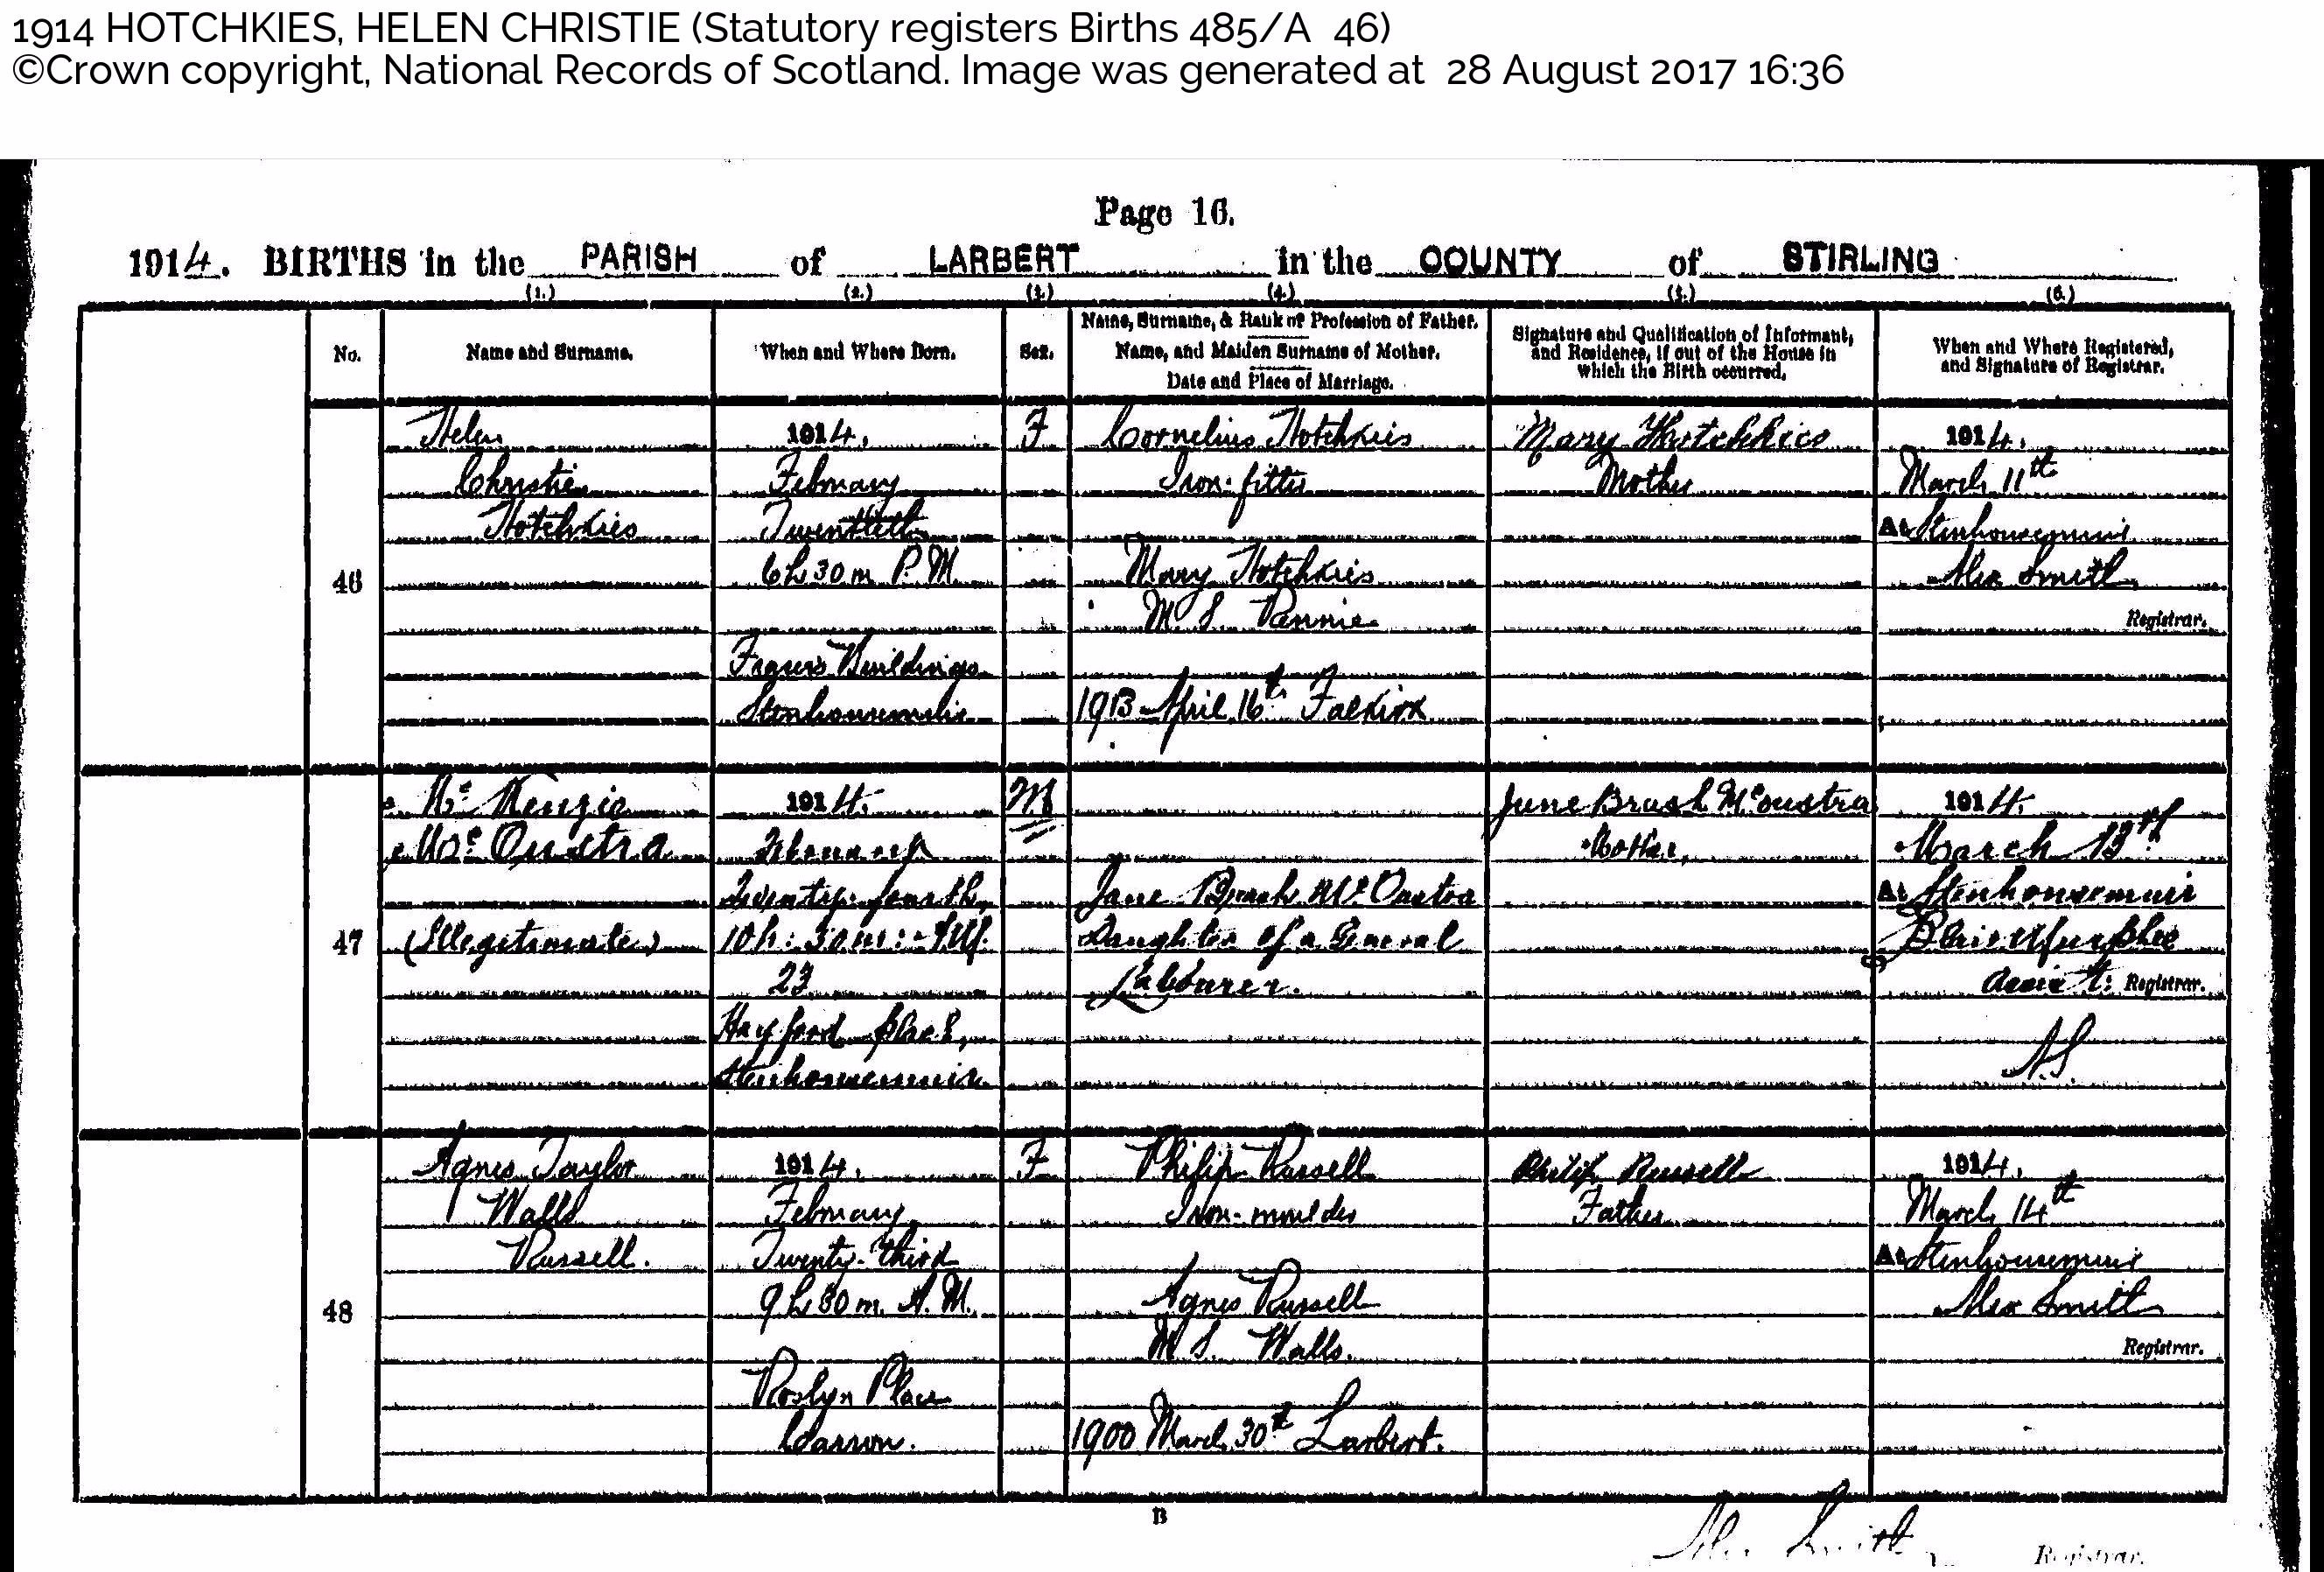 1914 HOTCHKIES, HELEN CHRISTIE (Statutory registers Births 485/A 46)
©Crown copyright, National Records of Scotland. Image was generated at 28 August 2017 16:36
Page 16.
1914. BIRTHS in the PARISH of LARBERT in the COUNTY of STIRLING
(1.) (2.) (3.) (4.) (5.) (6.)
No.
Name and Surname.
When and Where Born.
Sex.
Name, Surname, & Rank or Profession of Father.
Name, and Maiden Surname of Mother.
Date and Place of Marriage.
Signature and Qualification of Informant,
and Residence, if out of the House in
which the Birth occurred.
When and Where Registered,
and Signature of Registrar.
46
Helen
Christie
Hotchkies
1914.
February
Twentieth
6h 30m P.M.
Buildings
Stenhousemuir
F
Cornelius Hotchkies
Iron-fitter
Mary Hotchkies
M.S. Rennie
1913 April 16th Falkirk
Mary Hotchkies
Mother
1914.
March 11th
At Stenhousemuir
Alex Smith
Registrar.
47
McKenzie
McOustra
(Illegitimate)
1914.
February
Twenty-fourth,
10h. 30m.
23
Hayford place,
Stenhousemuir.
M
Jane Brash McOustra
Daughter of a General
Labourer.
Jane Brash McOustra
Mother,
1914.
March 13th
At Stenhousemuir
Assist. Registrar.
A.S.
48
Agnes Taylor
Walls
Russell.
1914.
February
Twenty-third
9h 30m. A.M.
Roslyn Place
Carron.
F
Philip Russell
Iron-moulder
Agnes Russell
M.S. Walls.
1900 March 30th Larbert.
Philip Russell
Father
1914.
March 14th
At Stenhousemuir
Alex Smith
Registrar.
B
Alex Smith
Registrar.